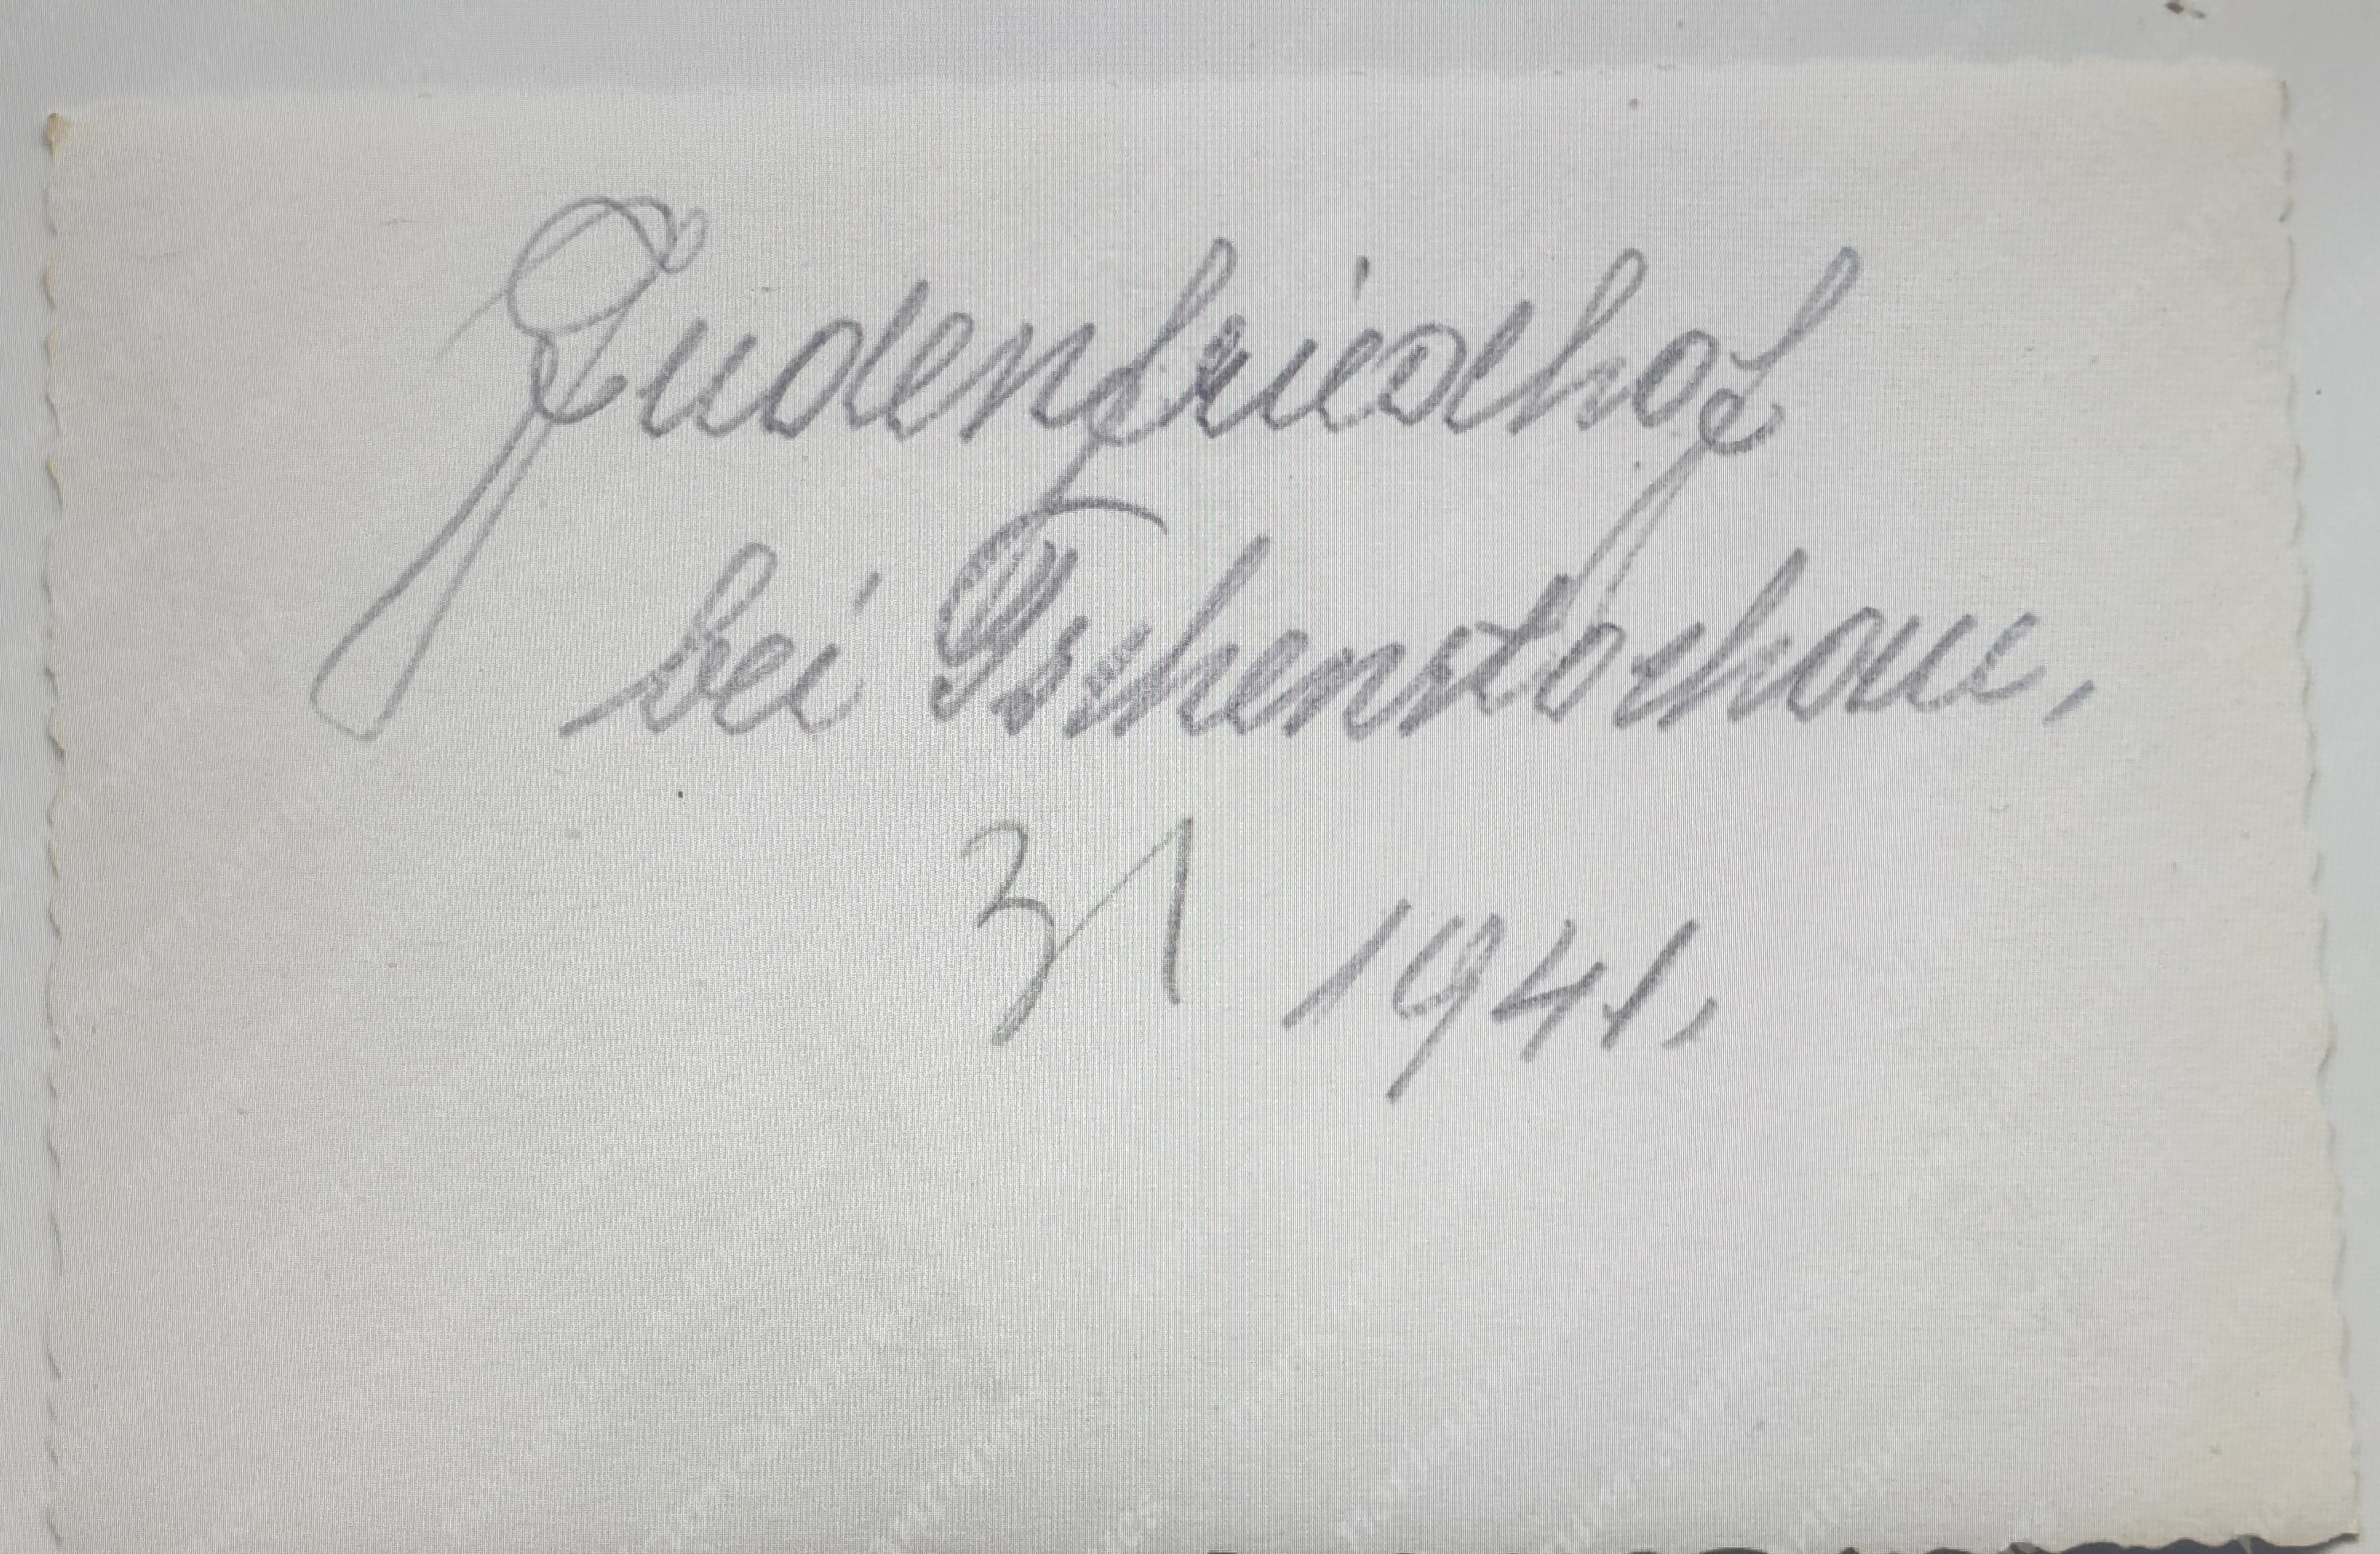 Judenfriedhof
bei Tschenstochau.
31 1941.